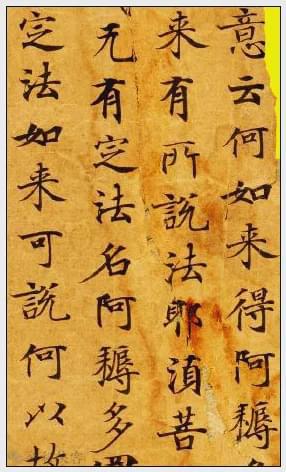 意云何如来得阿耨多
来有所說法耶湏菩
无有定法名阿耨多
定法如来可說何以故